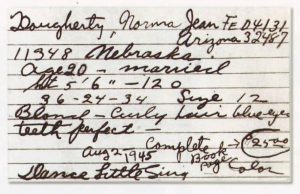 Dougherty, Norma Jean FE 04131
Arizona 32487
11348 Nebraska
Age 20 - married
Ht 5'6" - 120
36-24-34 Size 12
Blond - Curly hair blue eyes
teeth perfect -
Aug 2 1945 Complete $25.00
Book
Color
Dance Little Sing